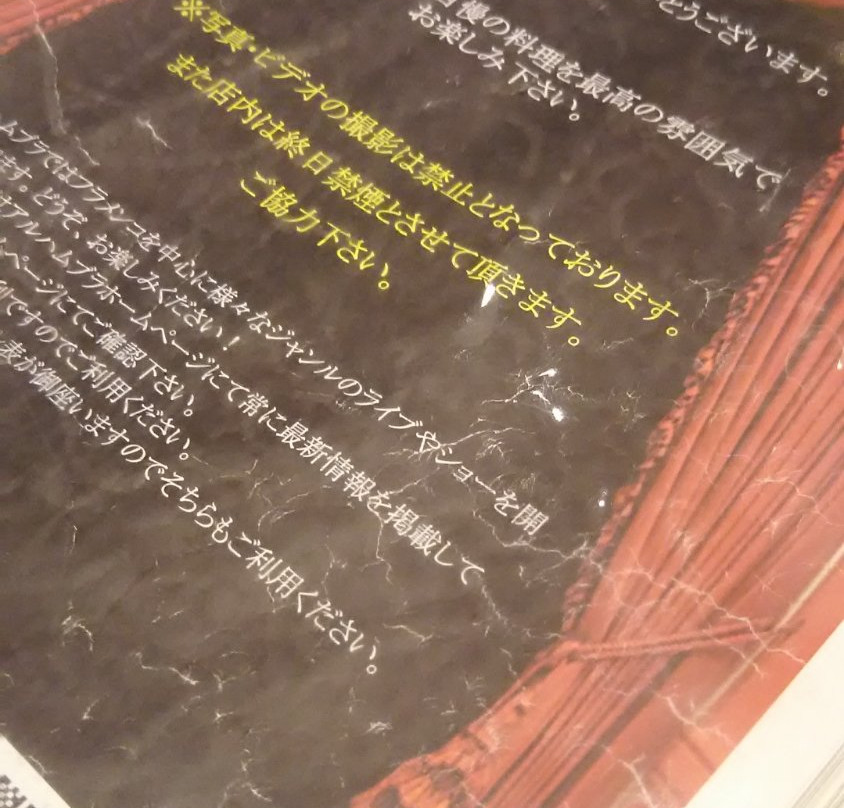 とうございます。
自慢の料理を最高の雰囲気で
お楽しみ下さい。
※写真・ビデオの撮影は禁止となっております。
また店内は終日禁煙とさせて頂きます。
ご協力下さい。
ムブラではフラメンコを中心に様々なジャンルのライブやショーを開
ます。どうぞ、お楽しみください!
はアルハムブラホームページにて常に最新情報を掲載して
ムページにてご確認下さい。
利ですのでご利用ください。
表が御座いますのでそちらもご利用ください。